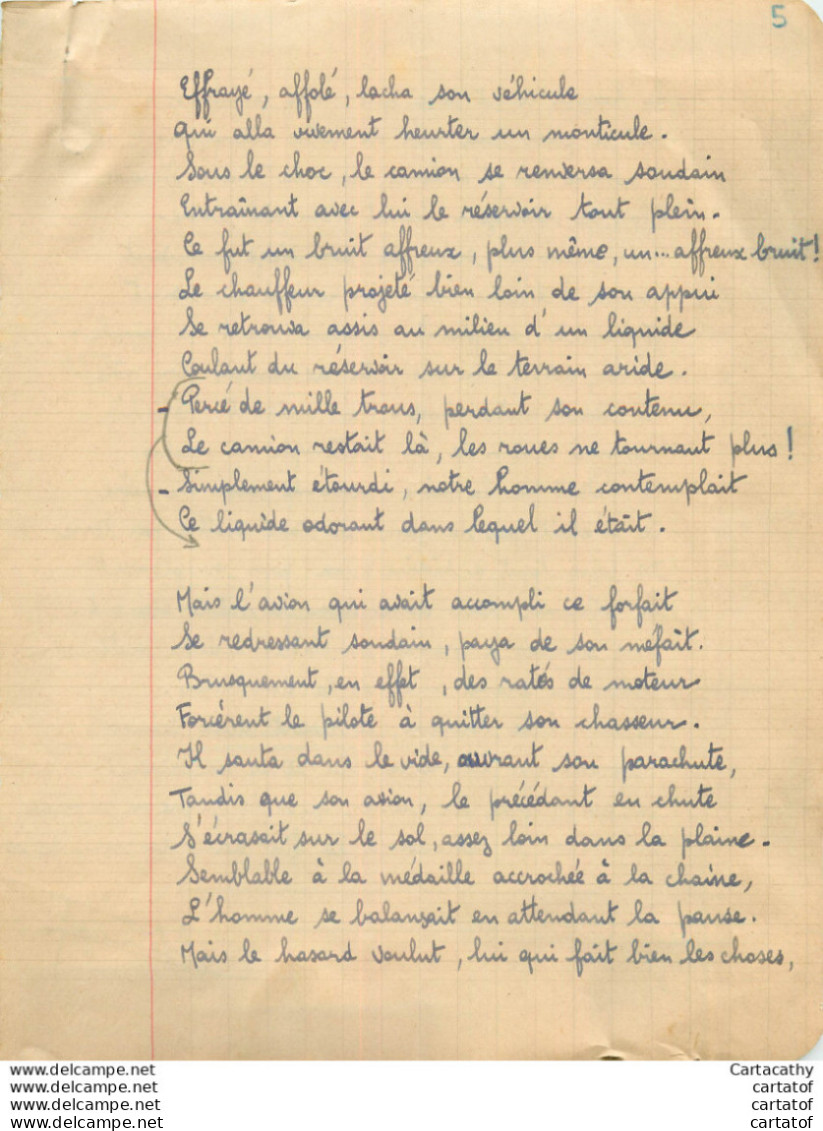 5
Effrayé, affolé, lacha son véhicule
qui alla vivement heurter un monticule.
Sous le choc, le camion se renversa soudain
Entraînant avec lui le réservoir tout plein.
Ce fut un bruit affreux, plus même, un... affreux bruit!
Le chauffeur projeté bien loin de son appui
Se retrouva assis au milieu d'un liquide
Coulant du réservoir sur le terrain aride.
- Percé de mille trous, perdant son contenu,
Le camion restait là, les roues ne tournant plus!
- Simplement étourdi, notre homme contemplait
Ce liquide odorant dans lequel il était.
Mais l'avion qui avait accompli ce forfait
Se redressant soudain, paya de son méfait.
Brusquement, en effet, des ratés de moteur
Forcèrent le pilote à quitter son chasseur.
Il sauta dans le vide, ouvrant son parachute,
Tandis que son avion, le précédant en chute
S'écrasait sur le sol, assez loin dans la plaine.
Semblable à la médaille accrochée à la chaine,
L'homme se balançait en attendant la pause.
Mais le hasard voulut, lui qui fait bien les choses,
www.delcampe.net
www.delcampe.net
www.delcampe.net
www.delcampe.net
Cartacathy
cartatof
cartatof
cartatof